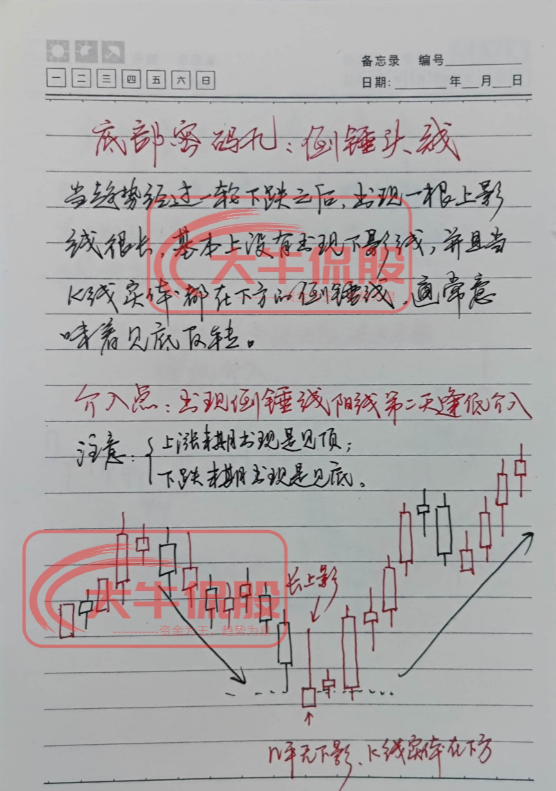 备忘录 编号
一 二 三 四 五 六 日
日期: 年 月 日
底部密码九:倒锤头线
当趋势经过一轮下跌之后,出现一根上影
线很长,基本上没有出现下影线,并且当
K线实体都在下方的倒锤线,通常意
味着见底反转。
介入点:出现倒锤线阳线第二天逢低介入
注意:
上涨末期出现是见顶;
下跌末期出现是见底。
大牛侃股
大牛侃股
长上影
几乎无下影、K线实体在下方